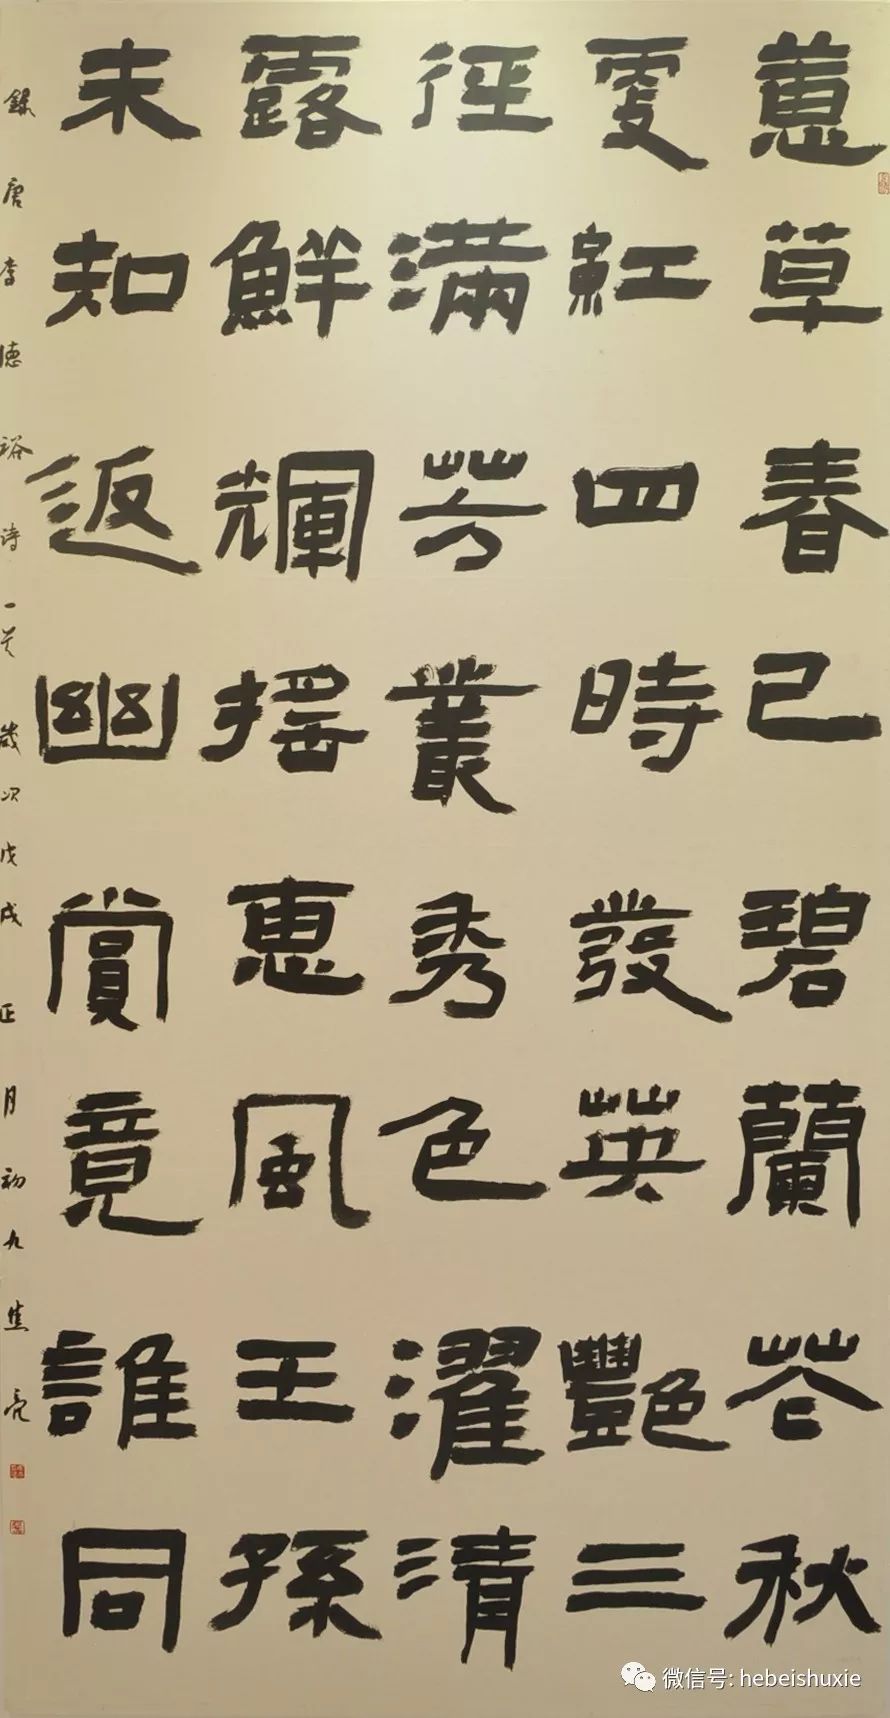 蕙草春已碧蘭花秋
更紅四時發英艷三
徑滿芳叢秀色濯清
露鮮輝搖惠風王孫
未知返幽賞竟誰同
錄唐李德裕诗一首歲次戊戌正月初九焦亮
微信号: hebeishuxie